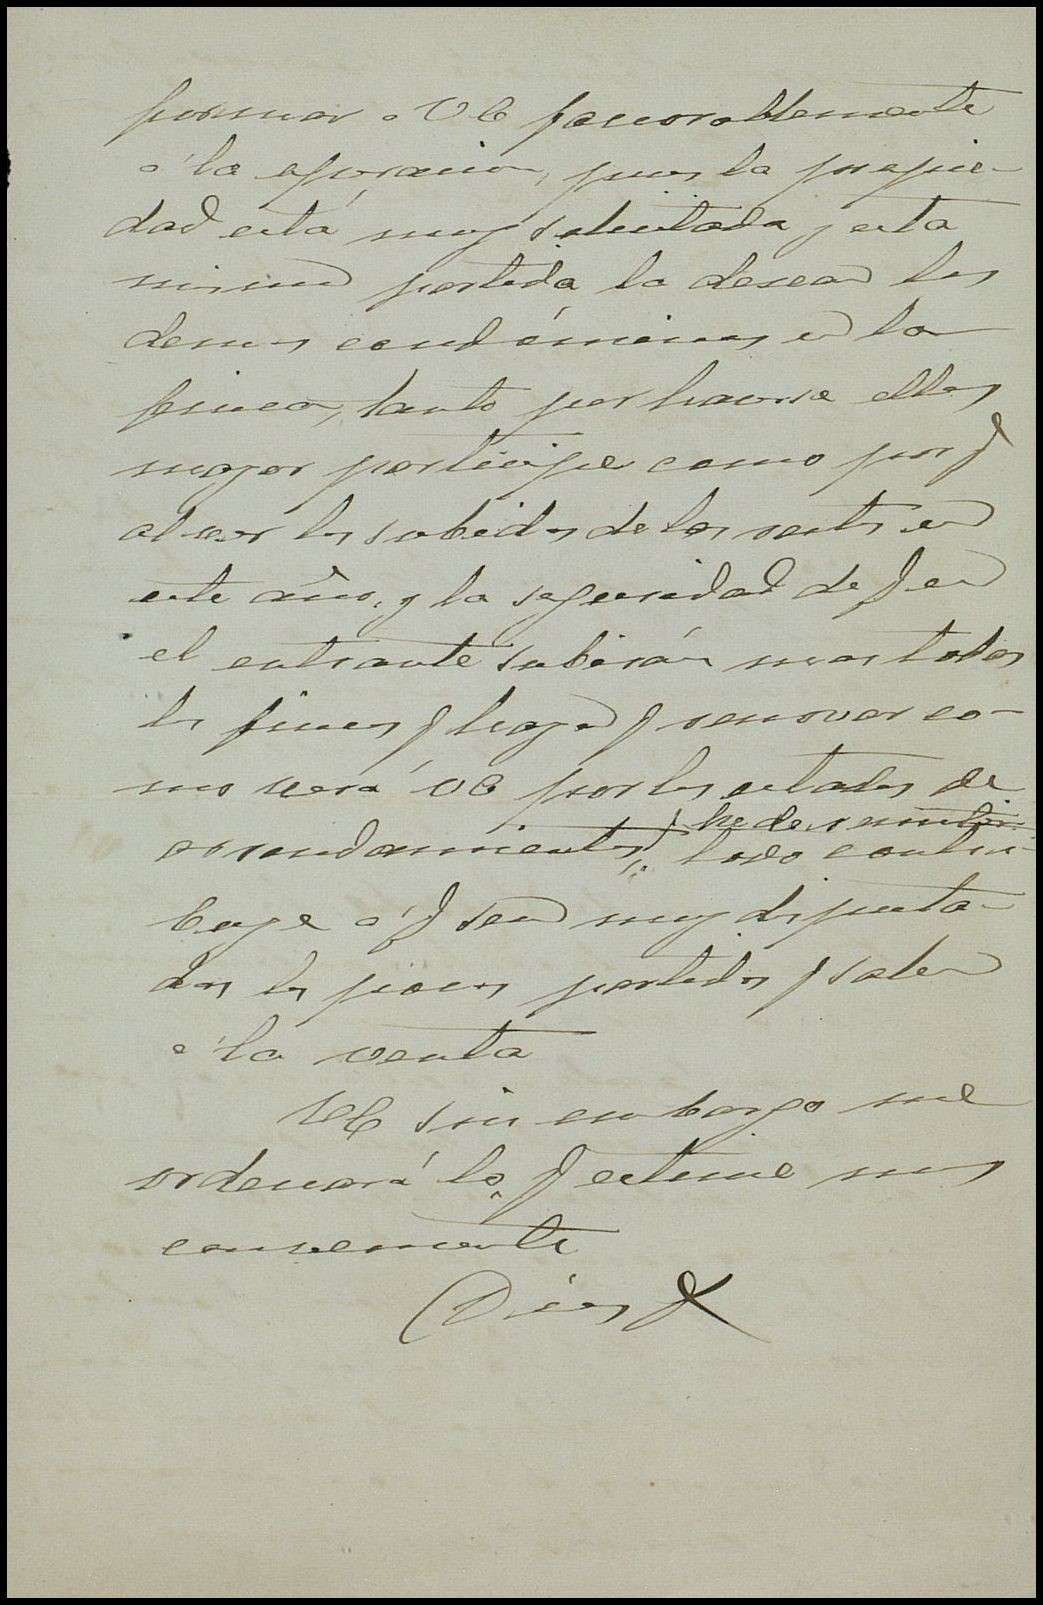 formar a VE favorablemente
á la operacion, pues la propie-
dad está muy solicitada y esta
misma partida la desean los
demas condóminos en la
finca, tanto por hacerse ellos
mayor participe como por q
al ver las subidas de las rentas en
este año, y la seguridad de q en
el entrante subirán mas todas
las fincas q hayan q renovar co-
mo verá VE por los estados de
arrendamientos q he de remitir
todo contri-
buye á q sean muy disputa-
das las pocas partidas q salen
á la venta
VE sin embargo me
ordenará lo q estime mas
conveniente
Dios g